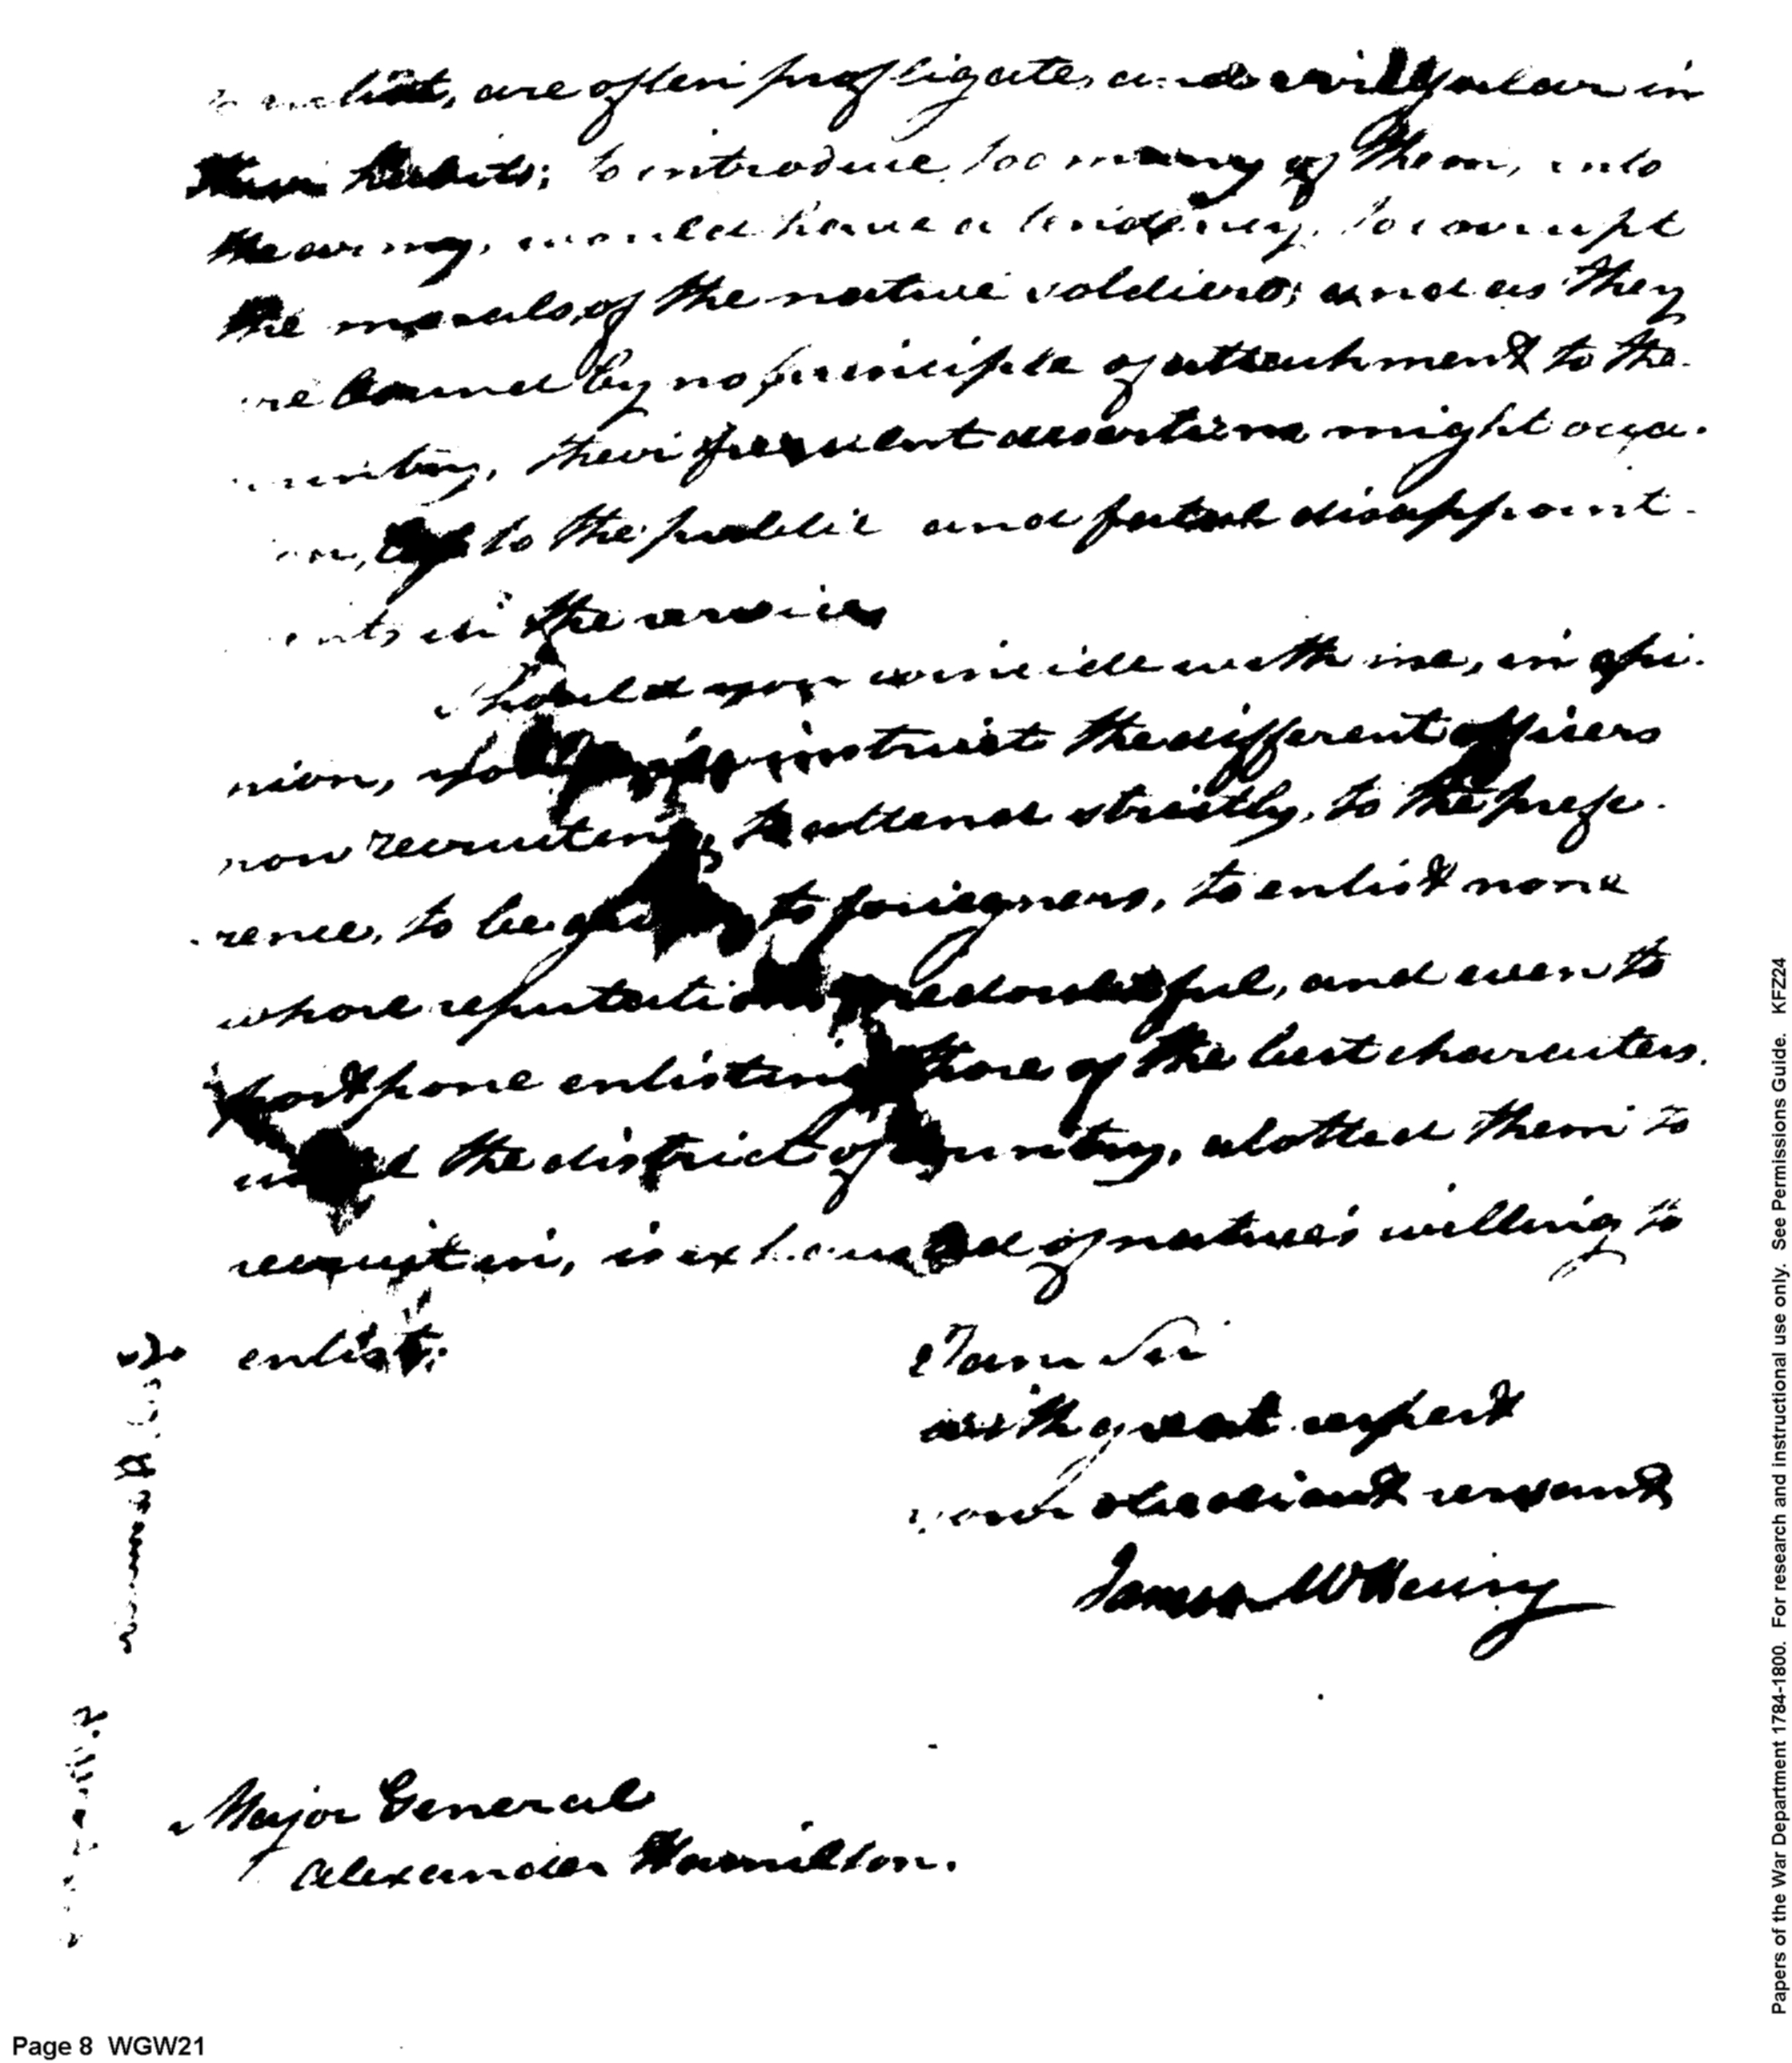 to enlist, are often profligate, and irregular in
their habits; to introduce too many of them, into
the army, would have a tendency, to corrupt
the morals, of the native soldiers; and as they
are bound by no principle of attachment to the
country, their frequent desertions might occa-
sion, to the public and disappoint-
ments in the service
Should you coincide with me, in opi-
nion, you instruct the different officers
now recruiting, to attend strictly, to the prefe-
rence, to be to foreigners, to enlist none
whose reputations are doubtful, and even to
postpone enlisting those of the best characters.
until the district of country, alotted them to
recruit in, is exhausted of natives willing to
enlist;
I am Sir
with great respect
your obedient servant
James McHenry
Major General
Alexander Hamilton.
Page 8 WGW21
Papers of the War Department 1784-1800. For research and instructional use only. See Permissions Guide. KF224